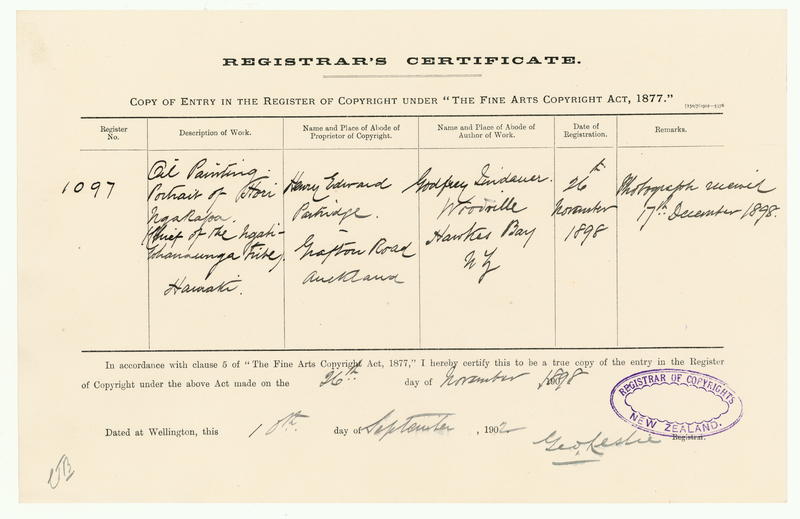 REGISTRAR'S CERTIFICATE.
COPY OF ENTRY IN THE REGISTER OF COPYRIGHT UNDER "THE FINE ARTS COPYRIGHT ACT, 1877."
Register No.
Description of Work.
Name and Place of Abode of Proprietor of Copyright.
Name and Place of Abode of Author of Work.
Date of Registration.
Remarks.
1097
Oil Painting.
Portrait of Hori
Ngakapa.
(Chief of the Ngati-
Whanaunga Tribe)
Hauraki.
Henry Edward
Partridge.
Grafton Road
Auckland
Godfrey Lindauer.
Woodville
Hawkes Bay
NZ
26th
November
1898
Photograph received
17th December 1898.
In accordance with clause 5 of "The Fine Arts Copyright Act, 1877," I hereby certify this to be a true copy of the entry in the Register
of Copyright under the above Act made on the 26th day of November 1898
Dated at Wellington, this 10th day of September, 1902
REGISTRAR OF COPYRIGHTS
NEW ZEALAND.
Geo. Leslie
Registrar.